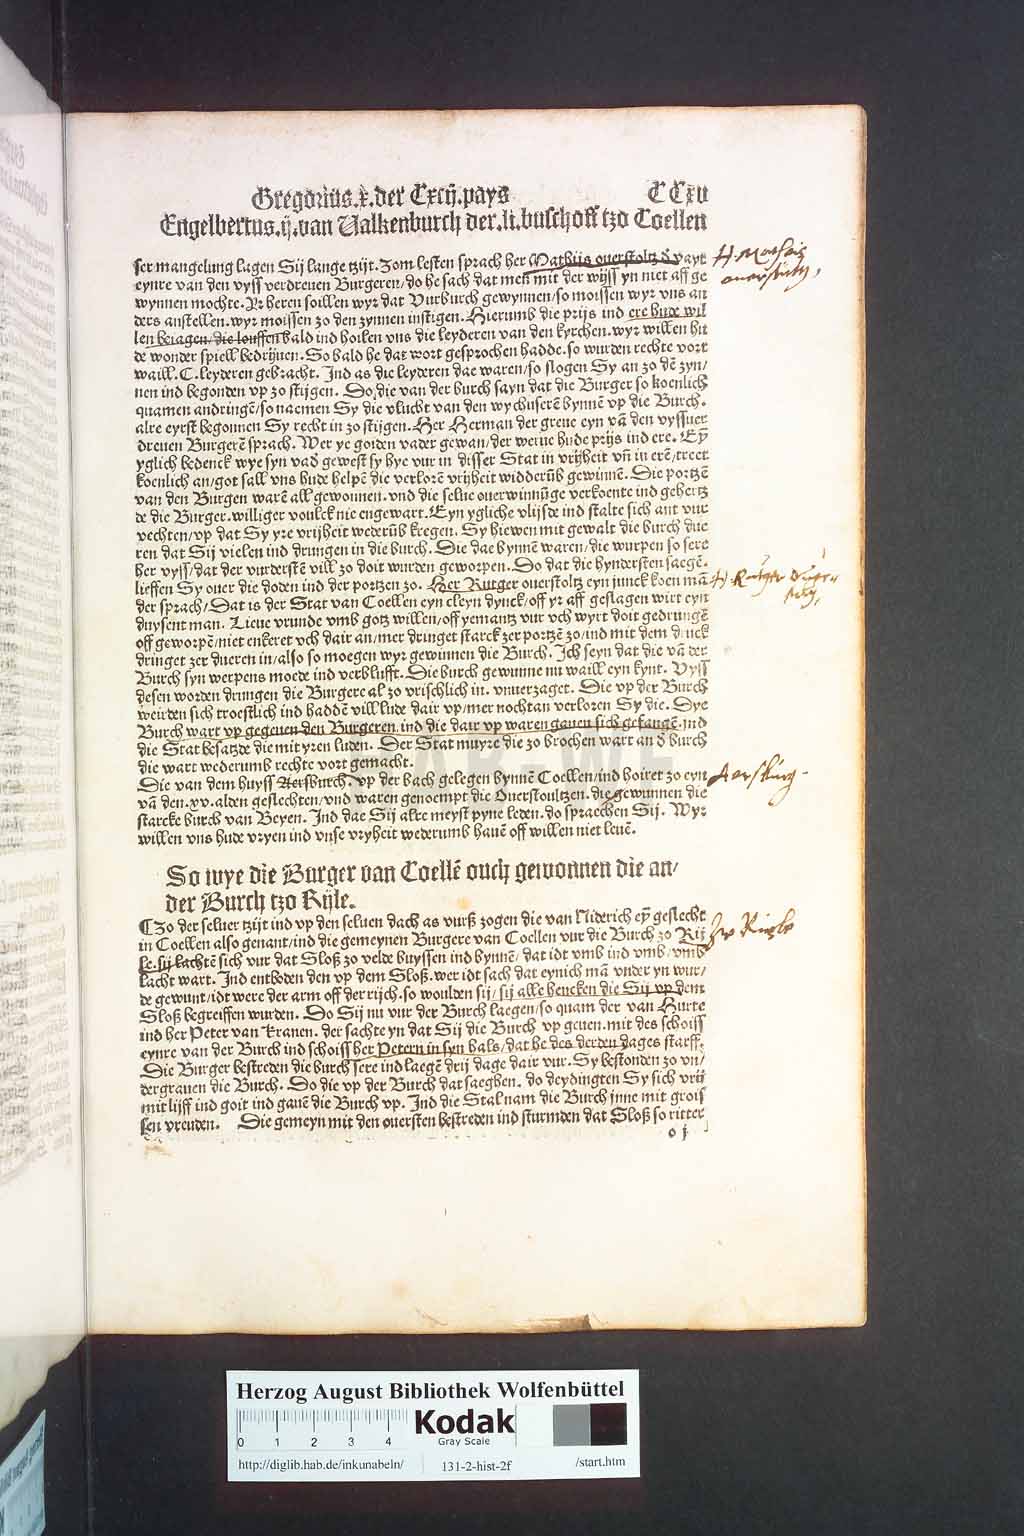 Gregorius.x.der Cxcij.pays CCxv
Engelbertus.ij.van Valkenburch der.li.buschoff tzo Coellen
ser mangelung lagen Sij lange tzijt. Zom lesten sprach her Mathijs ouerstoltz d̄ vayt
eynre van den vyss verdreuen Burgeren/do he sach dat men mit der wijss yn niet aff ge
wynnen mochte. Yr heren soillen wyr dat Vurburch gewynnen/so moissen wyr vns an
ders anstellen. wyr moissen zo den zynnen instigen. Hierumb die prijs ind ere hude wil
len beiagen/die louffen bald ind hoilen vns die leyderen van den kyrchen. wyr willen hu
de wonder spiell bedrijuen. So bald he dat wort gesprochen hadde. so wurden rechte vort
waill. C. leyderen gebracht. Ind as die leyderen dae waren/so slogen Sy an zo dē zyn/
nen ind begonden vp zo stijgen. Do die van der burch sayn dat die Burger so koenlich
quamen andringē/so naemen Sy die vlucht van den wychuserē bynnē vp die Burch.
alre eyrst begonnen Sy recht in zo stijgen. Her Herman der greue eyn vā den vyssuer
dreuen Burgerē sprach. Wer ye goiden vader gewan/der werue hude prijs ind ere. Eȳ
yglich bedenck wye syn vad̄ gewest sy hye vur in disser Stat in vrijheit vn̄ in erē/treet
koenlich an/got sall vns hude helpē die verlorē vrijheit widderūb gewinnē. Die portzē
van den Burgen warē all gewonnen. vnd die selue ouerwinnūge verkoente ind gehertz
de die Burger. williger voulck nie engewart. Eyn ygliche vlijsde ind stalte sich ant vur
vechten/vp dat Sy yre vrijheit wederūb kregen. Sy hiewen mit gewalt die burch due
ren dat Sij vielen ind drungen in die burch. Die dae bynnē waren/die wurpen so sere
her vyss/dat der vurderstē vill zo doit wurden geworpen. Do dat die hyndersten saegē.
lieffen Sy ouer die doden ind der portzen zo. Her Rutger ouerstoltz eyn junck koen mā
der sprach/Dat is der Stat van Coellen eyn cleyn dynck/off yr aff geslagen wirt eyn
duysent man. Lieue vrunde vmb gotz willen/off yemantz vur vch wyrt doit gedrungē
off geworpē/niet enkeret vch dair an/mer dringet starck zer portzē zo/ind mit dem druck
dringet zer dueren in/also so moegen wyr gewinnen die Burch. Ich seyn dat die vā der
Burch syn werpens moede ind verblufft. Die burch gewunne nu waill eyn kynt. Vyss
desen worden drungen die Burgere al zo vrischlich in. vnuerzaget. Die vp der Burch
weirden sich troestlich ind haddē vill lude dair vp/mer nochtan verloren Sy die. Dye
Burch wart vp gegeuen den Burgeren. ind die dair vp waren gauen sich gefangē. ind
die Stat besatzde die mit yren luden. Der Stat muyre die zo brochen wart an d̄ burch
die wart wederumb rechte vort gemacht.
Die van dem huyss Aersburch. vp der bach gelegen bynnē Coellen/ind hoiret zo eyn
vā den. xv. alden geslechten/vnd waren genoempt die Ouerstoultzen. die gewunnen die
starcke burch van Beyen. Ind dae Sij alre meyst pyne leden. do spraechen Sij. Wyr
willen vns hude vryen ind vnse vryheit wederumb hauē off willen niet leuē.
So wye die Burger van Coellē ouch gewonnen die an/
der Burch tzo Rijle.
¶Zo der seluer tzijt ind vp den seluen dach as vurß zogen die van Niderich eȳ geslecht
in Coellen also genant/ind die gemeynen Burgere van Coellen vur die Burch zo Rij
le. sij lachtē sich vur dat Sloß zo velde buyssen ind bynnē/ dat idt vmb ind vmb/ vmb
lacht wart. Ind entboden den vp dem Sloß. wer idt sach dat eynich mā vnder yn wur/
de gewunt/idt were der arm off der rijch. so woulden sij/ sij alle hencken die Sij vp dem
Sloß begreiffen wurden. Do Sij nu vur der Burch laegen/so quam der van Hurte
ind her Peter van Kranen. der sachte yn dat Sij die Burch vp geuen. mit des schoiss
eynre van der Burch ind schoiss her Petern in syn hals/dat he des derden dages starff.
Die Burger bestreden die burch sere ind laegē drij dage dair vur. Sy bestonden zo vn/
dergrauen die Burch. Do die vp der Burch dat saeghen. do deydingten Sy sich vrij
mit lijff ind goit ind gauē die Burch vp. Ind die Stat nam die Burch jnne mit grois
sen vreuden. Die gemeyn mit den ouersten bestreden ind sturmden dat Sloß so ritter
o j
H. Mathis
ouerstultz,
H. Rutger
Aersburg
Zo Riele
Herzog August Bibliothek Wolfenbüttel
0 1 2 3 4
Kodak
Gray Scale
http://diglib.hab.de/inkunabeln/ 131-2-hist-2f /start.htm